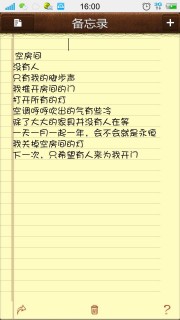 16:00
备忘录
空房间
没有人
只有我的脚步声
我推开房间的门
打开所有的灯
空调呼呼吹出的气有些冷
除了大大的家具并没有人在等
一天一月一起一年，会不会就是永恒
我关掉空房间的灯
下一次，只希望有人来为我开门